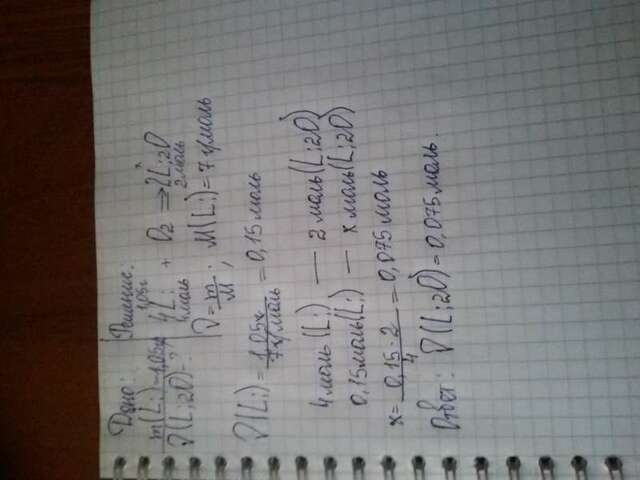 Дано: Решение:
m(Li)=1,05г 1,05г x
4Li + O2 ⇒ 2Li2O
ν(Li2O)-? 4моль 2моль
ν=m/M; M(Li)=7г/моль
ν(Li)=1,05г/7г/моль=0,15 моль
4моль(Li) — 2 моль(Li2O)
0,15моль(Li) — x моль(Li2O)
x=0,15·2/4=0,075 моль
Ответ: ν(Li2O)=0,075 моль.